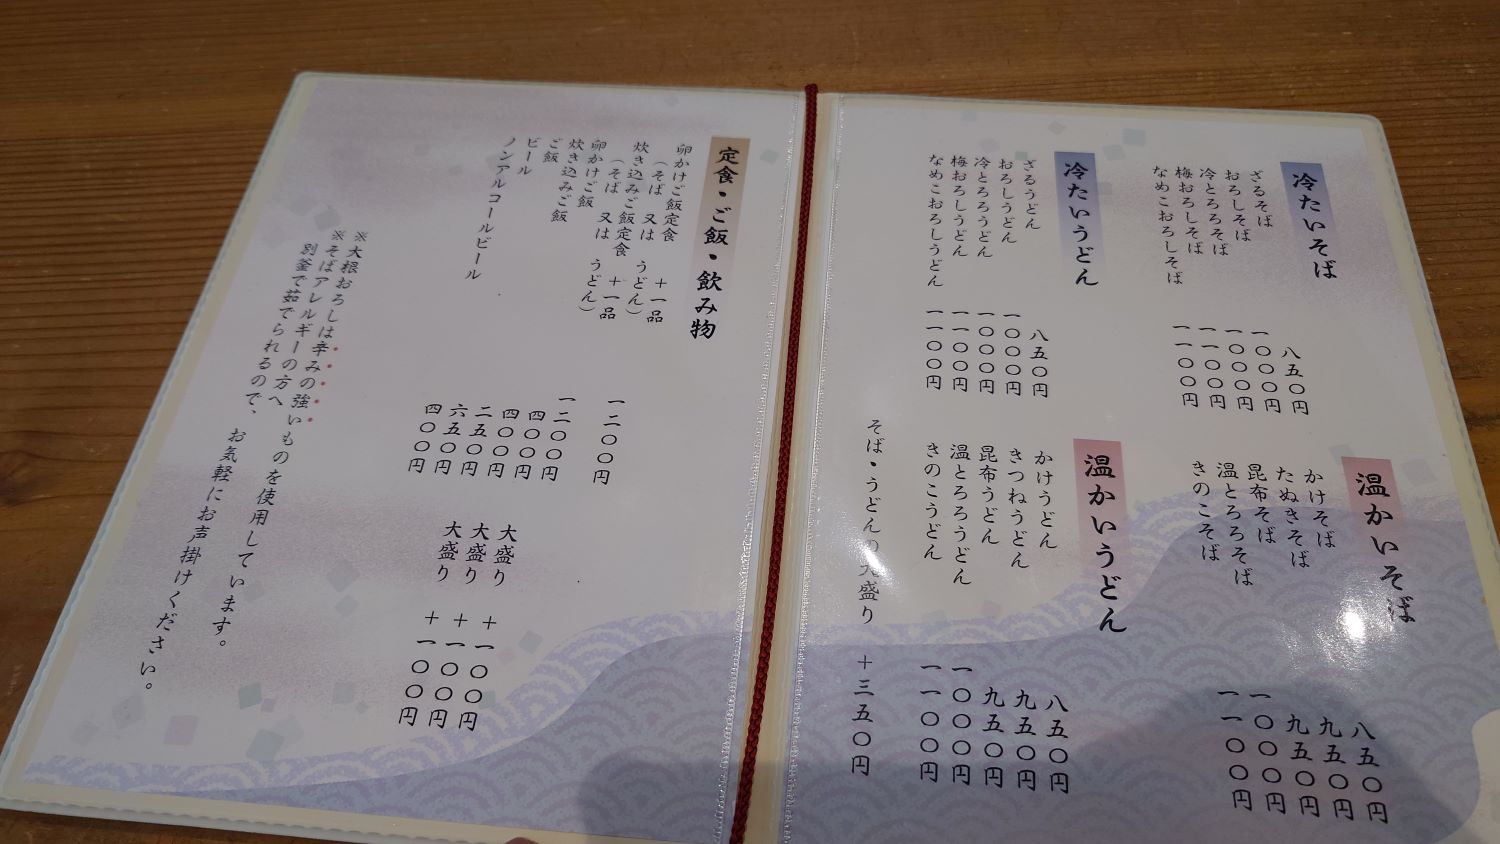 冷たいそば
ざるそば 八五〇円
おろしそば 一〇〇〇円
冷とろろそば 一〇〇〇円
梅おろしそば 一一〇〇円
なめこおろしそば 一一〇〇円
温かいそば
かけそば 八五〇円
たぬきそば 九五〇円
昆布そば 九五〇円
温とろろそば 一〇〇〇円
きのこそば 一一〇〇円
冷たいうどん
ざるうどん 八五〇円
おろしうどん 一〇〇〇円
冷とろろうどん 一〇〇〇円
梅おろしうどん 一一〇〇円
なめこおろしうどん 一一〇〇円
温かいうどん
かけうどん 八五〇円
きつねうどん 九五〇円
昆布うどん 九五〇円
温とろろうどん 一〇〇〇円
きのこうどん 一一〇〇円
そば・うどんの大盛り 十三五〇円
定食・ご飯・飲み物
卵かけご飯定食 十一品 一二〇〇円
(そば 又は うどん)
炊き込みご飯定食 十一品 一二〇〇円
(そば 又は うどん)
卵かけご飯 四〇〇円 大盛り 十一〇〇円
炊き込みご飯 四〇〇円 大盛り 十一〇〇円
ご飯 二五〇円 大盛り 十一〇〇円
ビール 六五〇円
ノンアルコールビール 四〇〇円
※大根おろしは辛みの強いものを使用しています。
※そばアレルギーの方へ
別釜で茹でられるので、お気軽にお声掛けください。